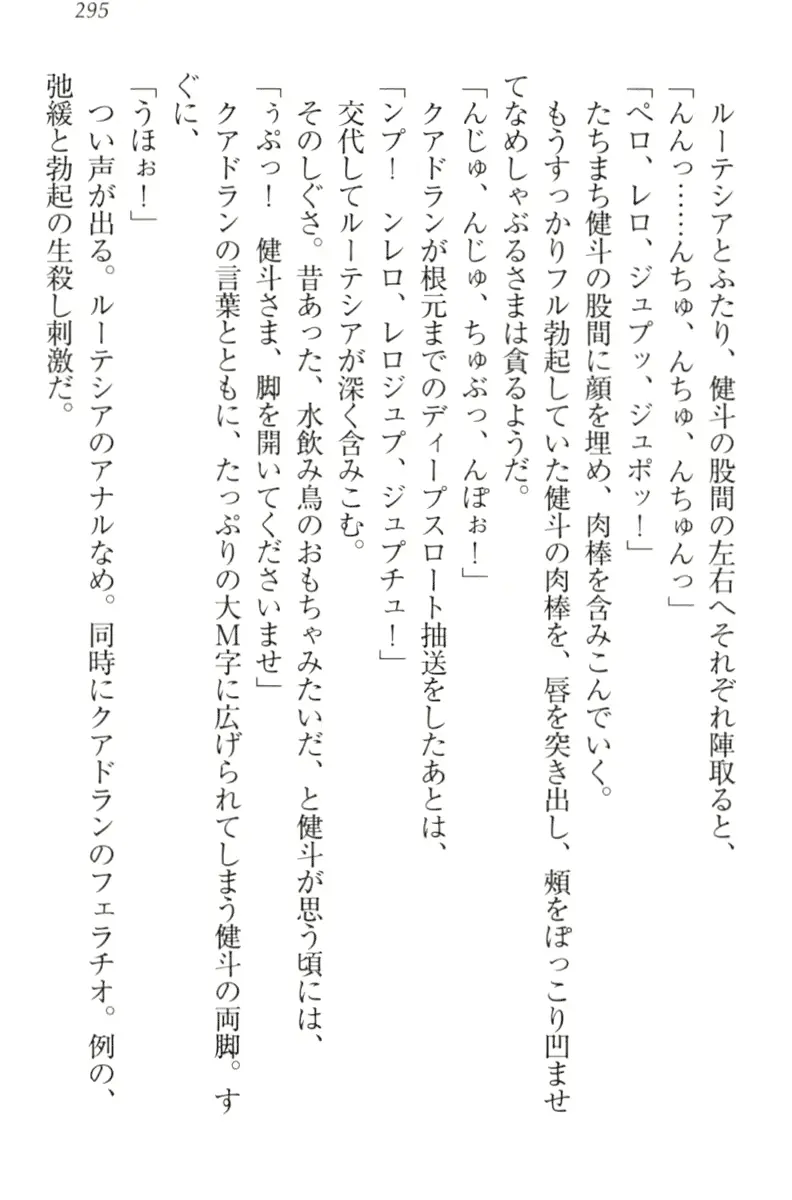 295
　ルーテシアとふたり、健斗の股間の左右へそれぞれ陣取ると、
「んんっ……んちゅ、んちゅ、んちゅんっ」
「ペロ、レロ、ジュプッ、ジュポッ！」
　たちまち健斗の股間に顔を埋め、肉棒を含みこんでいく。
　もうすっかりフル勃起していた健斗の肉棒を、唇を突き出し、頬をぽっこり凹ませ
てなめしゃぶるさまは貪るようだ。
「んじゅ、んじゅ、ちゅぶっ、んぽぉ！」
　クアドランが根元までのディープスロート抽送をしたあとは、
「ンプ！　ンレロ、レロジュプ、ジュプチュ！」
　交代してルーテシアが深く含みこむ。
　そのしぐさ。昔あった、水飲み鳥のおもちゃみたいだ、と健斗が思う頃には、
「ぅぷっ！　健斗さま、脚を開いてくださいませ」
　クアドランの言葉とともに、たっぷりの大Ｍ字に広げられてしまう健斗の両脚。す
ぐに、
「うほぉ！」
　つい声が出る。ルーテシアのアナルなめ。同時にクアドランのフェラチオ。例の、
弛緩と勃起の生殺し刺激だ。